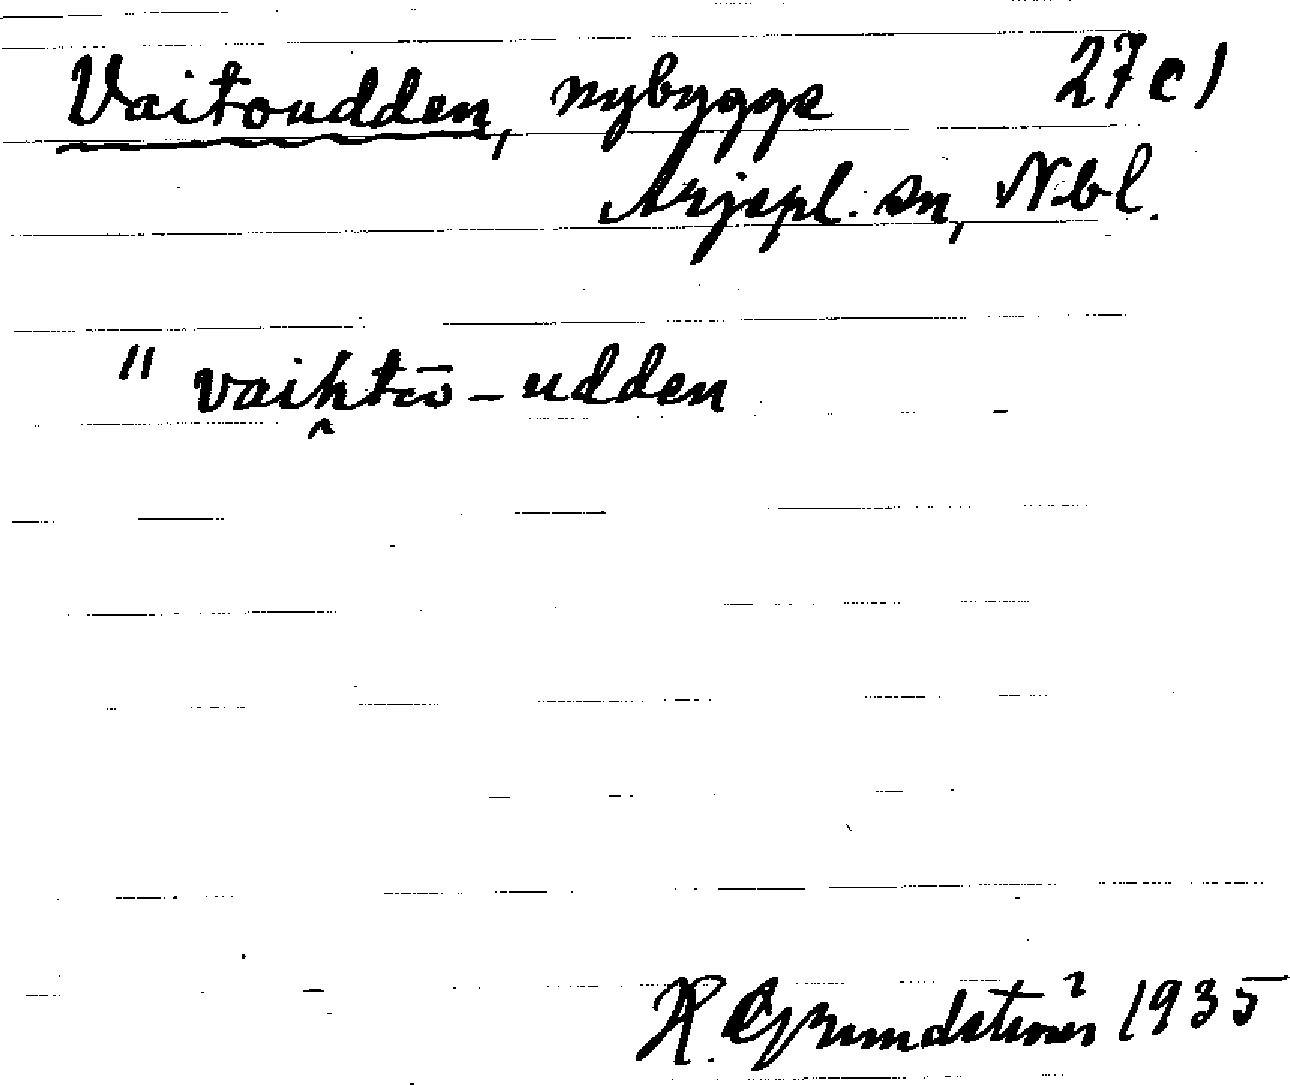 Vaitoudden, nybygge 27 c)
Arjepl. sn, Nbl.
" vaiktō-udden
H. Grundström 1935